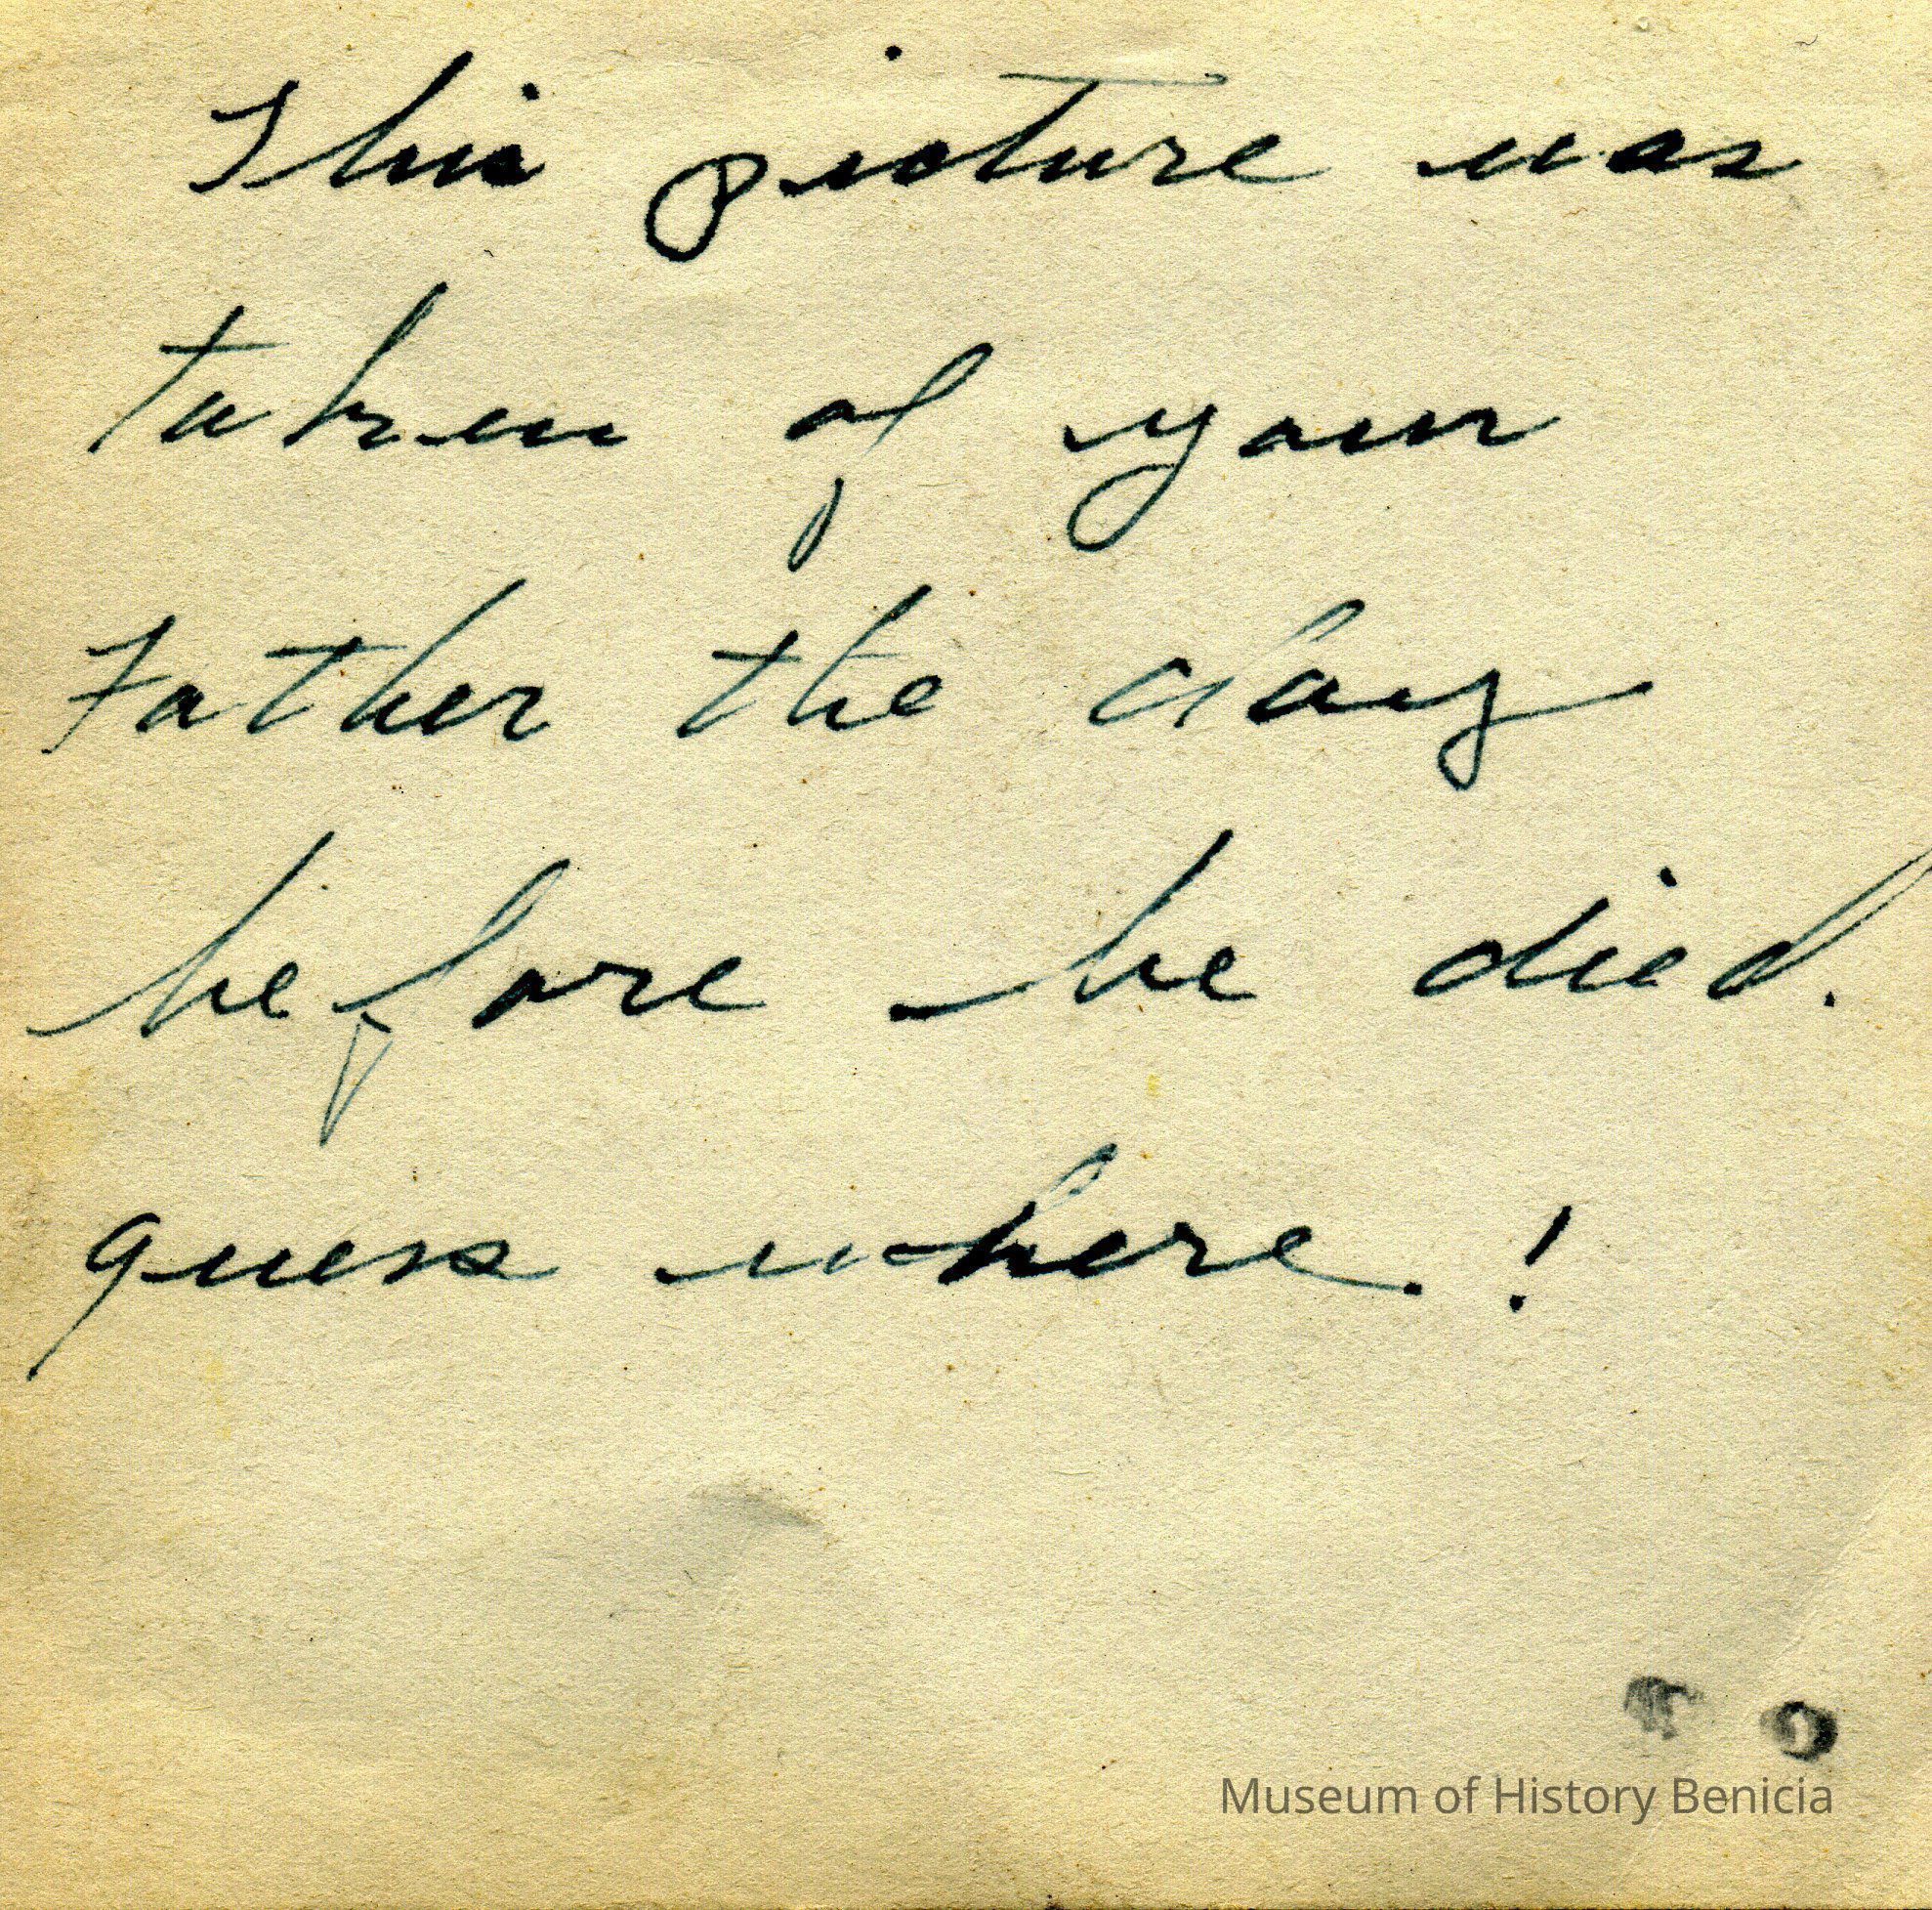 This picture was
taken of your
Father the day
before he died.
guess where. !
Museum of History Benicia